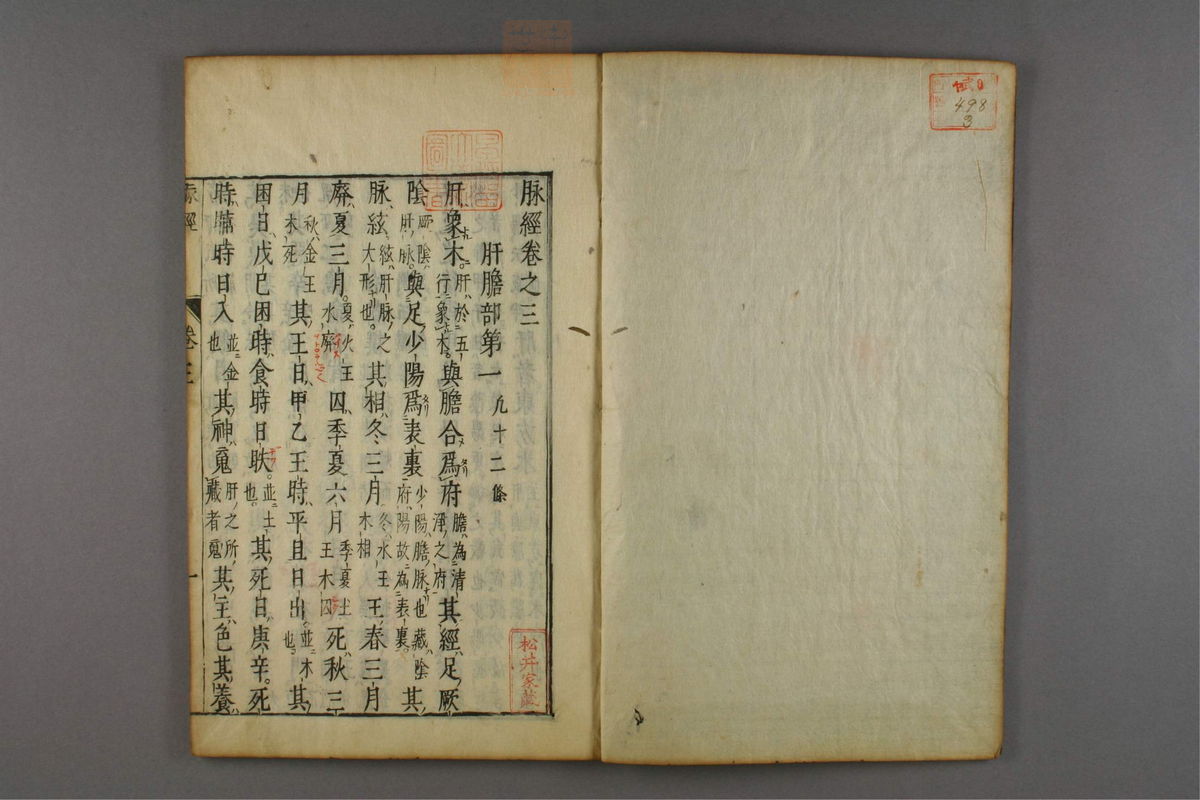 脉經卷之三
肝膽部第一 九十二條
肝象木肝於五行象木與膽合爲府膽為清淨之府其經足厥
陰厥陰肝脉與足少陽爲表裏少陽膽脉也藏陰府陽故為表裏其
脉絃絃肝脉之大形也其相冬三月冬水王木相王春三月
廢夏三月夏火王木廢囚季夏六月季夏土王木囚死秋三
月秋金王木死其王日甲乙王時平旦日出並木也其
困日戊巳困時食時日昳並土也其死日庚辛死
時晡時日入並金也其神䰟肝之所藏者䰟其主色其養
脉經 卷三 一
松井家藏
498
3